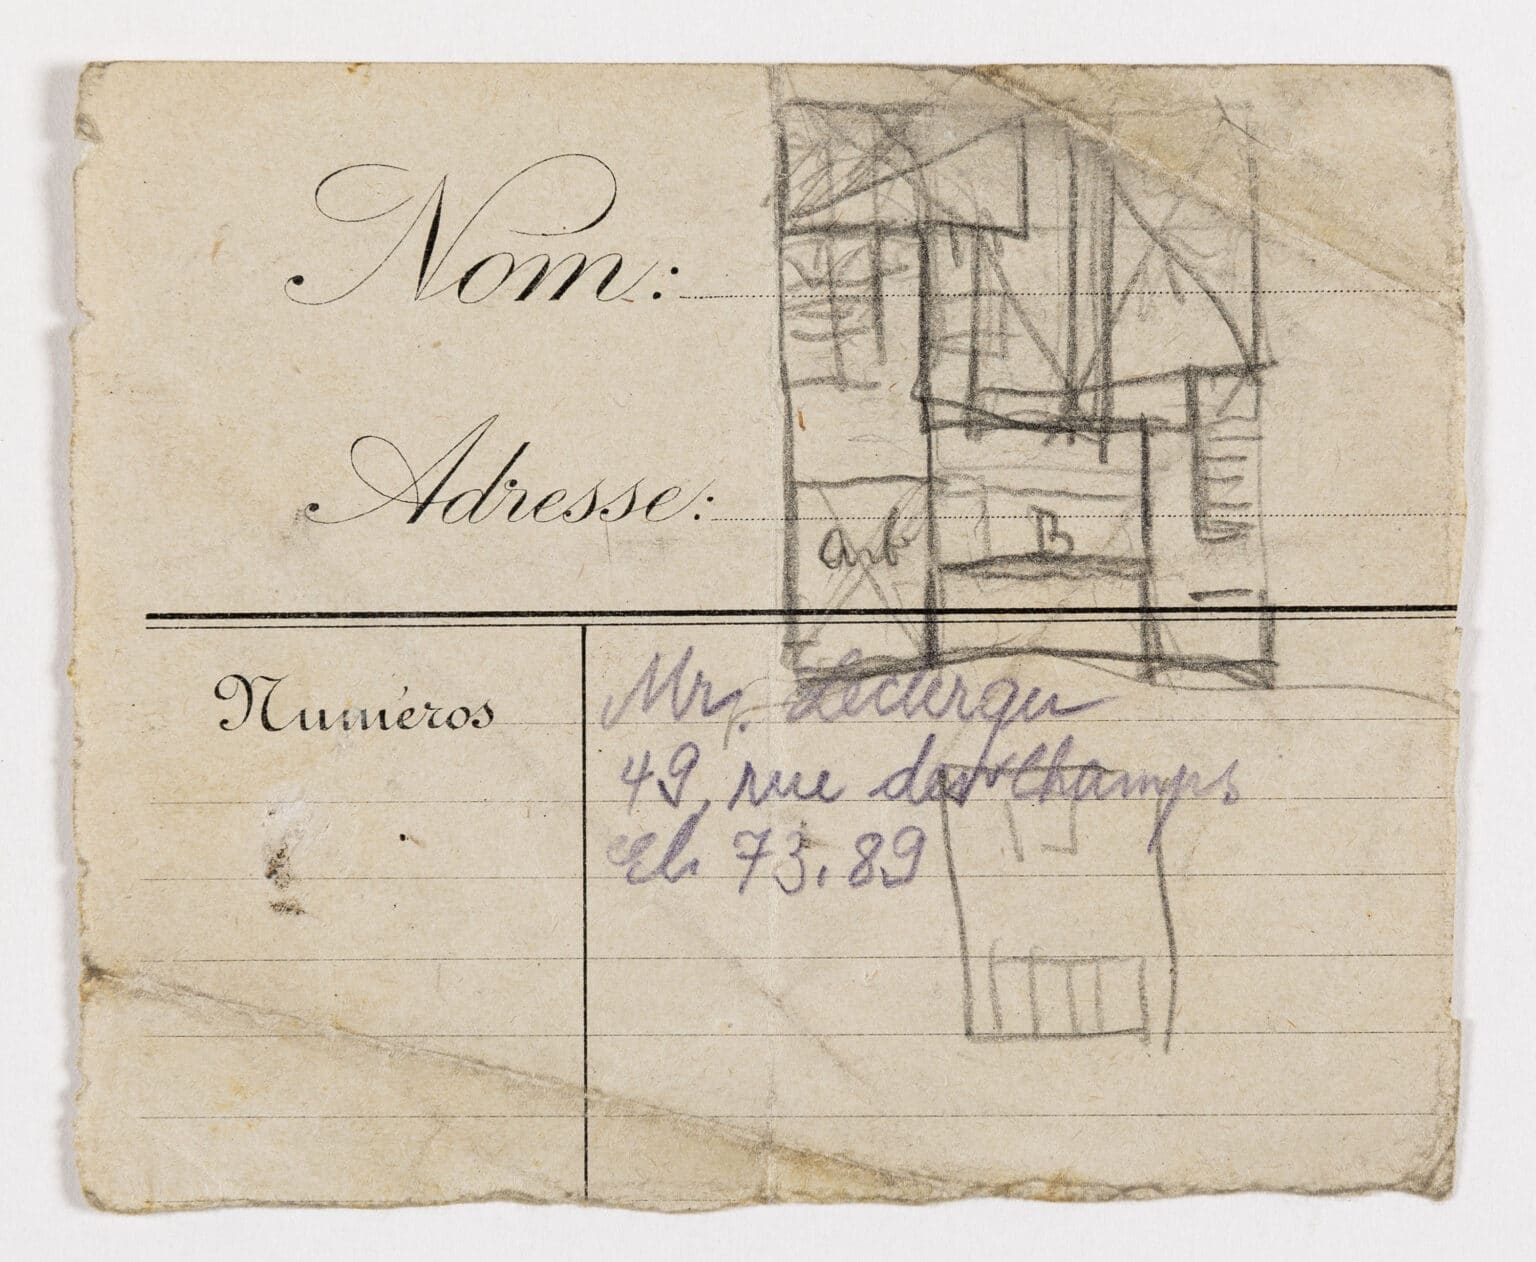 Nom:
Adresse:
arb
B
Numéros
Mr. Leclerqu
49, rue des Champs
El. 73.89